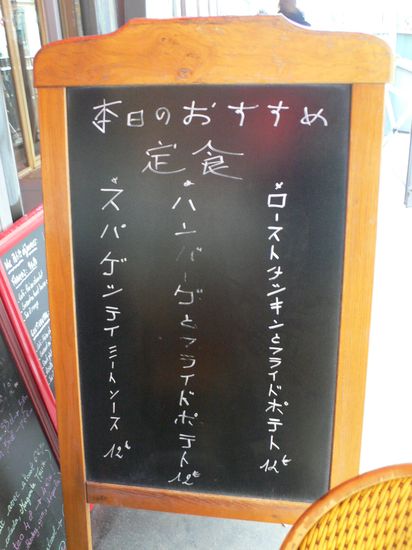 本日のおすすめ
定食
*ローストタンキンとフライドポテト 12€
*ハンバーグとフライドポテト 12€
*スパゲッティミートソース 12€